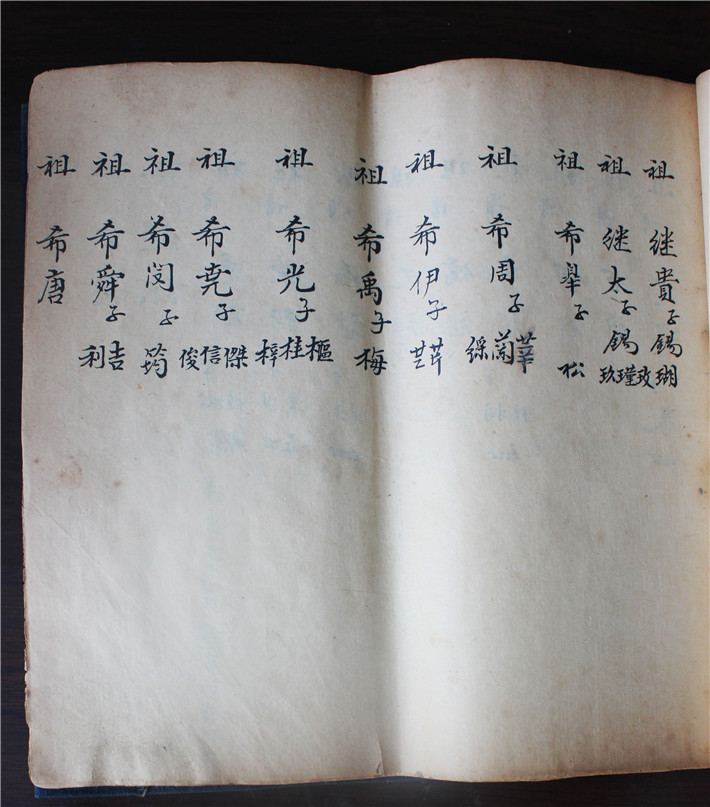 祖 继貴子錫瑚玫
祖 继太子錫瑾玖
祖 希臯子松
祖 希周子華蘭
祖 希伊子芹芸
祖 希禹子梅
祖 希光子樞桂梓
祖 希堯子傑信俊
祖 希闵子筠
祖 希舜子吉利
祖 希唐